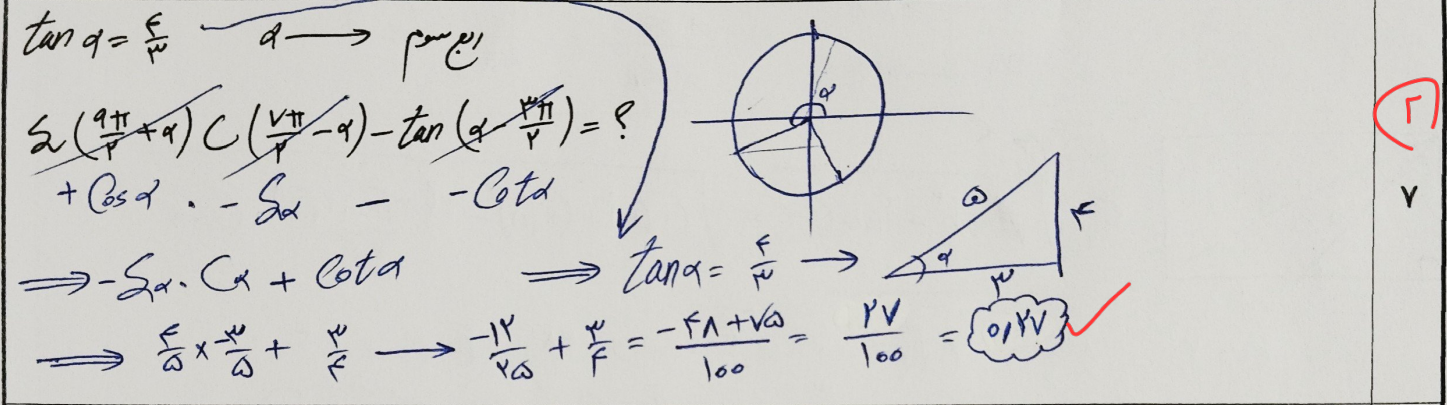 tan α = ۴/۳ α ⟶ ربع سوم
S(۹π/۲ + α) C(۷π/۲ − α) − tan(α − ۳π/۲) = ؟
+ Cos α . − Sα − − Cotα
⟹ − Sα . Cα + Cotα ⟹ tanα = ۴/۳ ⟶
⟹ ۴/۵ × −۳/۵ + ۳/۴ ⟶ −۱۲/۲۵ + ۳/۴ = −۴۸+۷۵/۱۰۰ = ۲۷/۱۰۰ = ۰٫۲۷
α
۵ ۴
α
۳
۲
۷